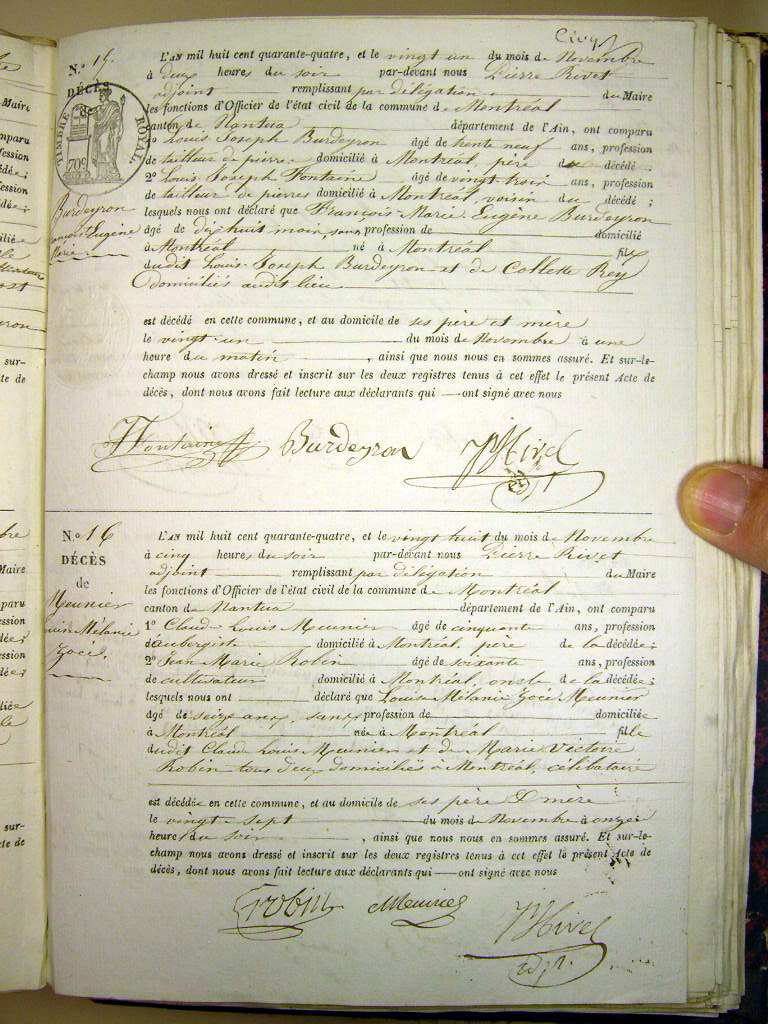 N.° 15.
DÉCÈS
TIMBRE ROYAL
709
Burdeyron
françois Eugène
Marie
L'AN mil huit cent quarante-quatre, et le vingt un du mois de Novembre
à deux heures du soir par-devant nous Pierre Rivet
adjoint remplissant par délégation du Maire
les fonctions d'Officier de l'état civil de la commune de Montréal
canton de Nantua département de l'Ain, ont comparu
1° Louis Joseph Burdeyron âgé de trente neuf ans, profession
de tailleur de pierre domicilié à Montréal, père du décédé
2° Louis Joseph Fontaine âgé de vingt trois ans, profession
de tailleur de pierres domicilié à Montréal, voisin du décédé ;
lesquels nous ont déclaré que François Marie Eugène Burdeyron
âgé de dix huit mois, sans profession de domicilié
à Montréal né à Montréal fils
dudit Louis Joseph Burdeyron et de Collette Rey
domiciliés audit lieu
est décédé en cette commune, et au domicile de ses père et mère
le vingt un du mois de Novembre à une
heure du matin , ainsi que nous nous en sommes assuré. Et sur-le-
champ nous avons dressé et inscrit sur les deux registres tenus à cet effet le présent Acte de
décès, dont nous avons fait lecture aux déclarants qui ont signé avec nous
Fontaine Burdeyron
N.° 16
DÉCÈS
de
Meunier
Mélanie
Zoé
L'AN mil huit cent quarante-quatre, et le vingt huit du mois de Novembre
à cinq heures du soir par-devant nous Pierre Rivet
adjoint remplissant par délégation du Maire
les fonctions d'Officier de l'état civil de la commune de Montréal
canton de Nantua département de l'Ain, ont comparu
1° Claude Louis Meunier âgé de cinquante ans, profession
d'aubergiste domicilié à Montréal, père de la décédée ;
2° Jean Marie Robin âgé de soixante ans, profession
de cultivateur domicilié à Montréal, oncle de la décédée ;
lesquels nous ont déclaré que Louise Mélanie Zoé Meunier
âgé de seize ans, sans profession de domiciliée
à Montréal née à Montréal fille
dudit Claude Louis Meunier et de Marie Victoire
Robin tous deux domiciliés à Montréal, célibataire
est décédée en cette commune, et au domicile de ses père & mère
le vingt sept du mois de Novembre à onze
heure du soir , ainsi que nous nous en sommes assuré. Et sur-le-
champ nous avons dressé et inscrit sur les deux registres tenus à cet effet le présent Acte de
décès, dont nous avons fait lecture aux déclarants qui ont signé avec nous
Robin Meunier